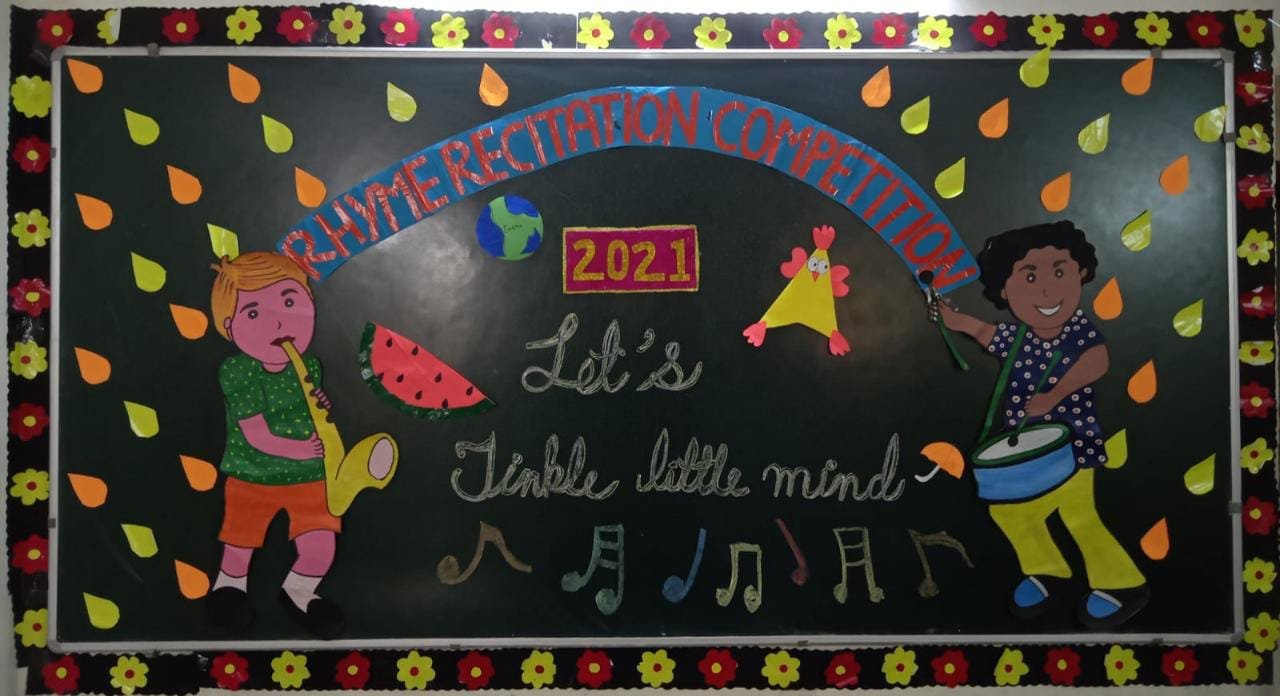 RHYME RECITATION COMPETITION
Earth
2021
Let's
Tinkle little mind